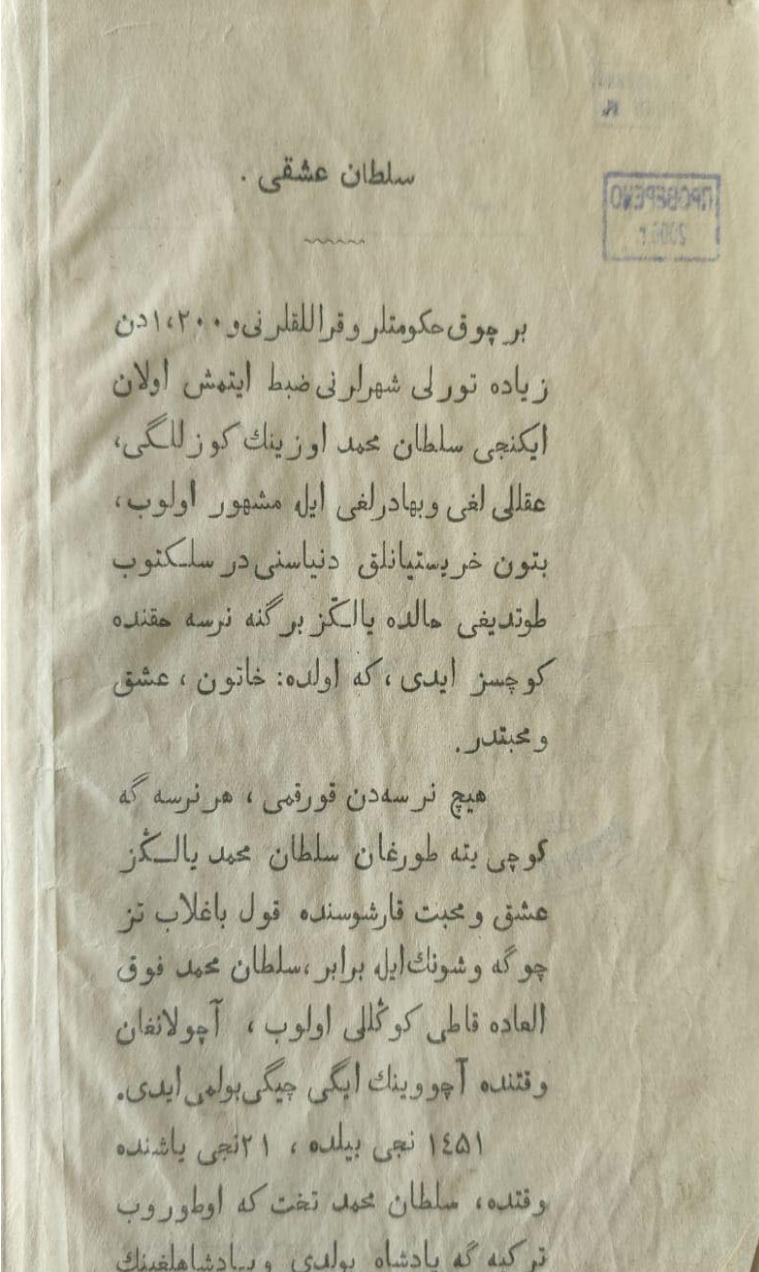 سلطان عشقی .
بر چوق حكومتلر و قراللقلرنی و ۱،۲۰۰ دن
زیاده تورلی شهرلرنی ضبط ایتمش اولان
ایكنجی سلطان محمد اوزینك كوزللـگی،
عقللی لغی و بهادرلغی ایله مشهور اولوب،
بتون خریستیانلق دنیاسنی در سلـكتوب
طوتدیغی حالده یالـڭز برگنه نرسه حقنده
كوچسز ایدی ، كه اولده: خاتون ، عشق
و محبتدر.
هیچ نرسه‌دن قورقمی ، هر نرسه گه
كوچی یته طورغان سلطان محمد یالــڭز
عشق و محبت قارشوسنده قول باغلاب تز
چوگه و شونك ایله برابر، سلطان محمد فوق
العاده قاطی كوڭللی اولوب ، آچولانغان
وقتنده آچووینك ایگی چیگی بولمی ایدی.
۱٤۵۱ نجی ییلده ، ۲۱نجی یاشنده
وقتده، سلطان محمد تخت كه اوطوروب
تركیه گه پادشاه بولدی و پـادشاهلغینك
ПРОВЕРЕНО